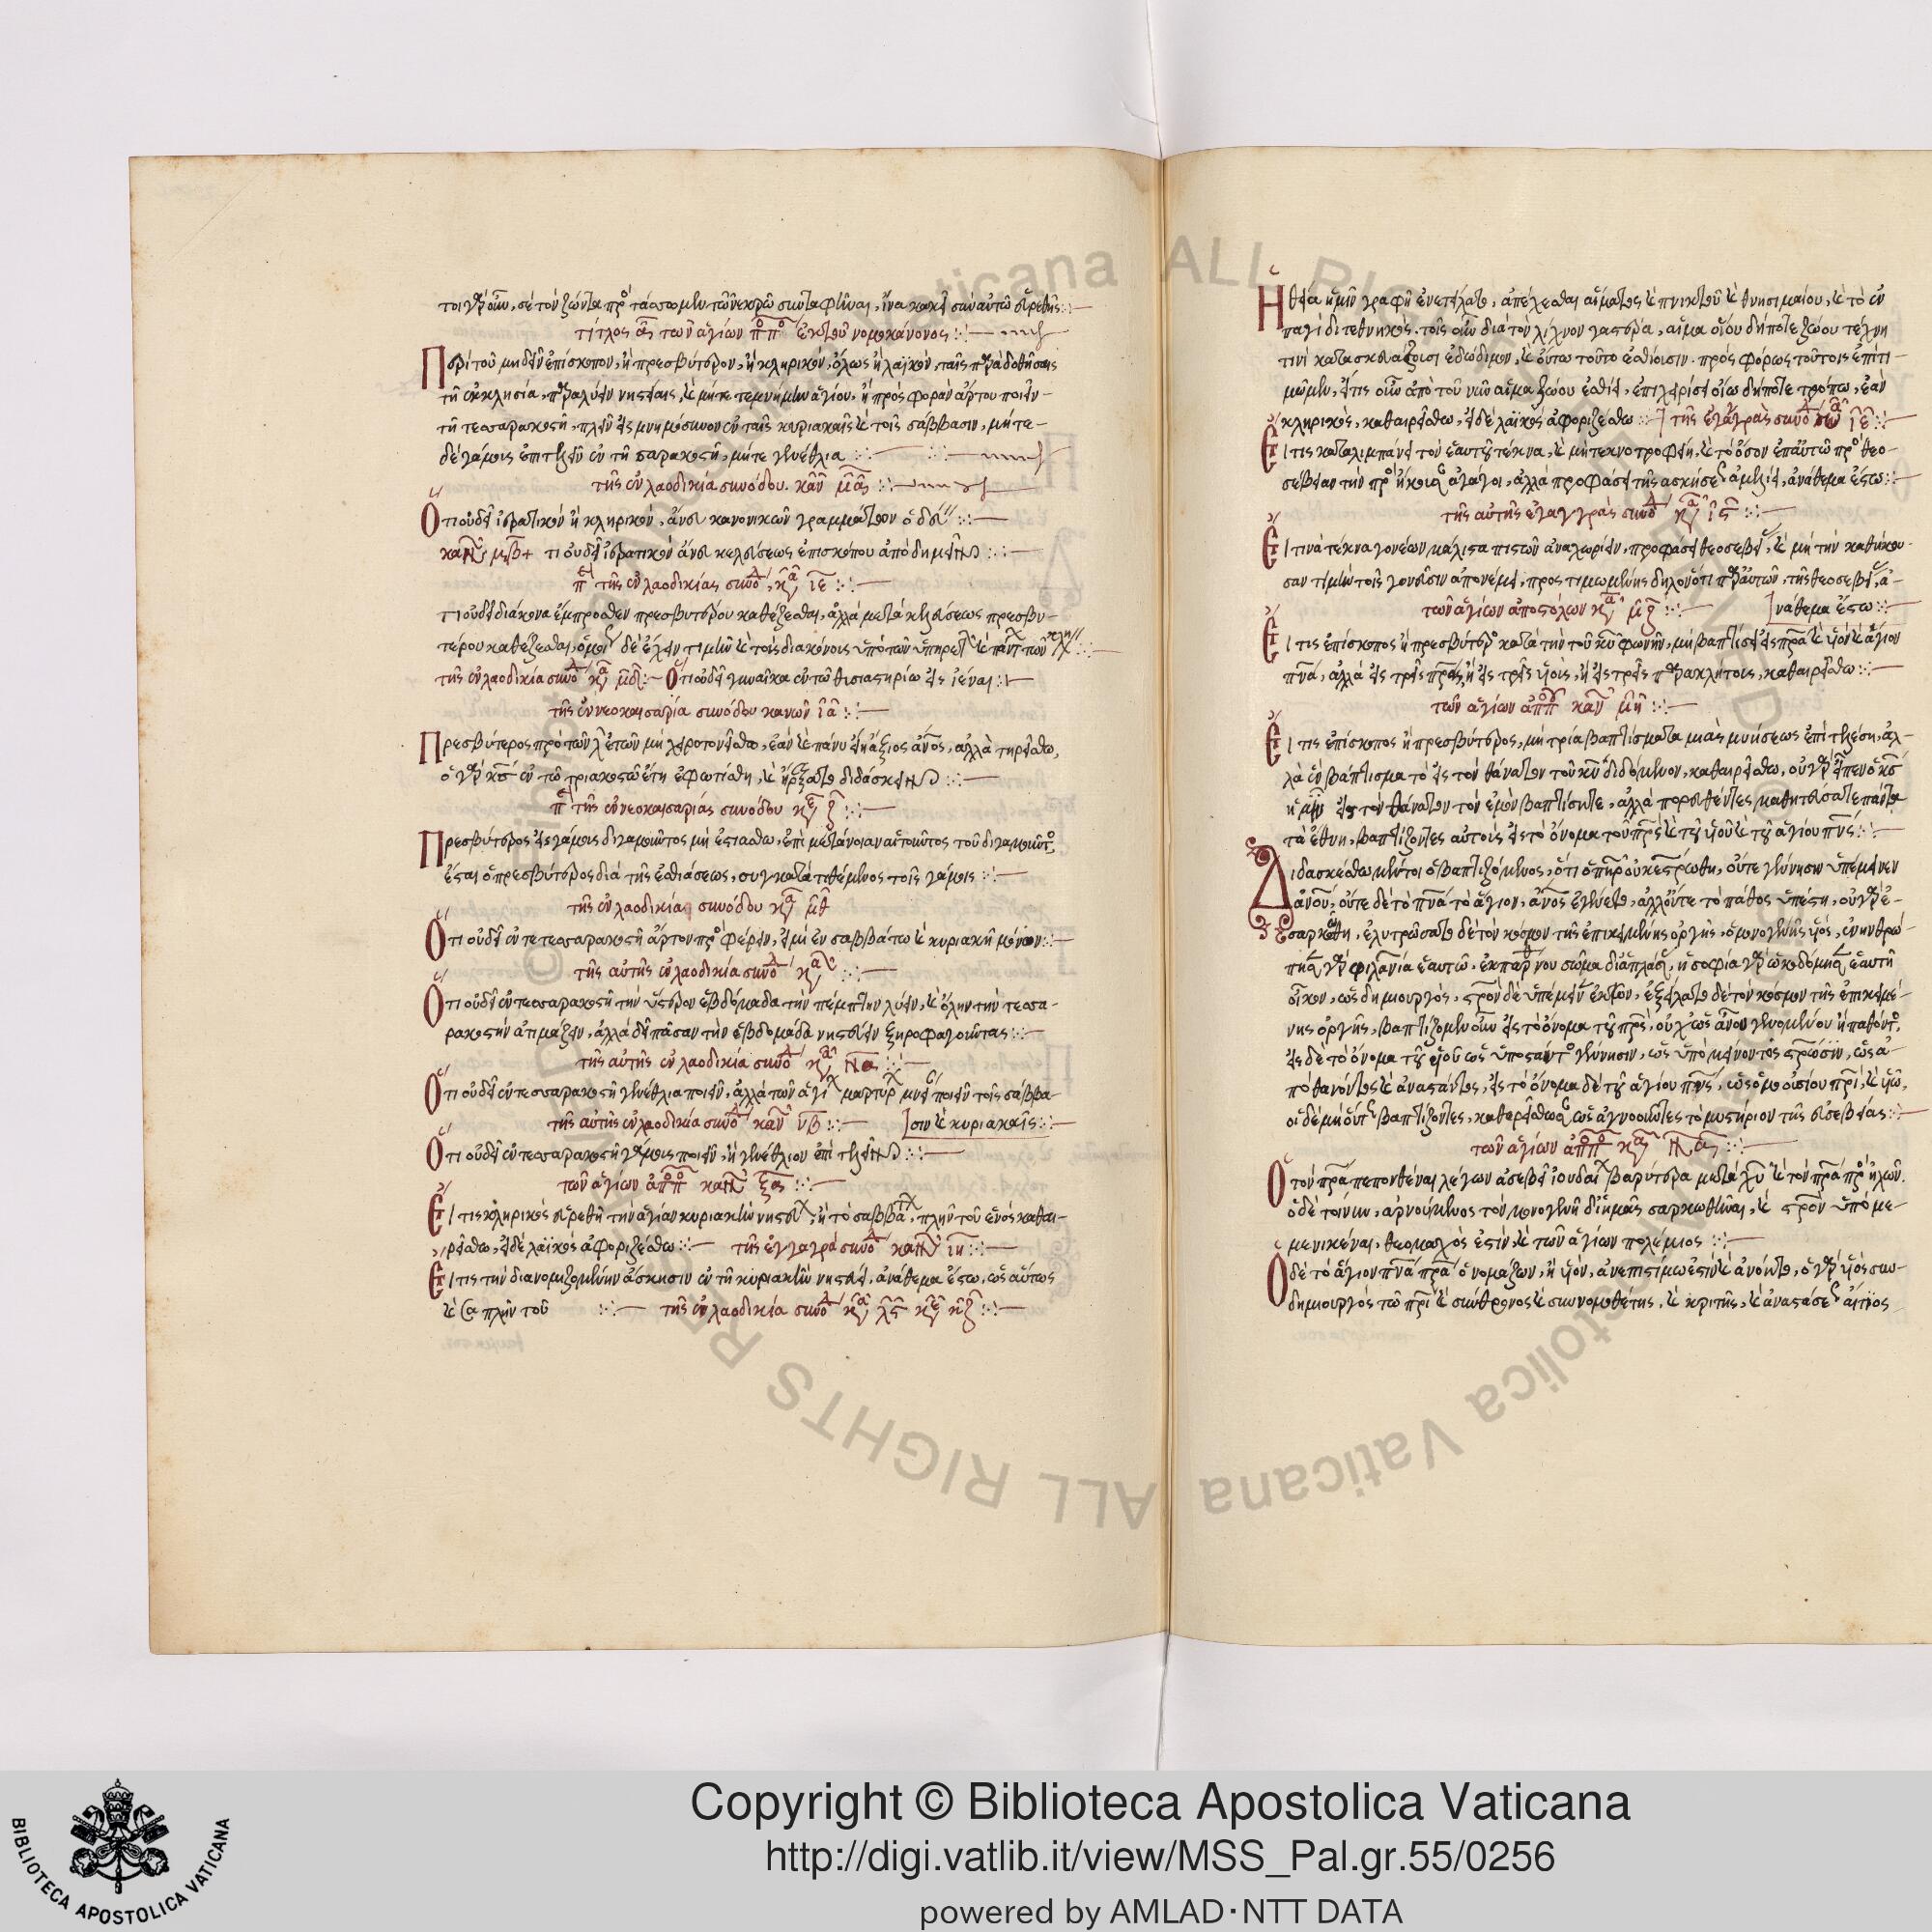 τοιγὰρ οὖν, σὲ τὸν ζῶντα πρὸ τάσσομεν τῶ νεκρῶ συνταφῆναι, ἵνα κακεῖ σὺν αὐτῶ εὑρεθῆς
τίτλος α τῶν ἁγίων νομοκάνονος
Περὶ τοῦ μηδένα ἐπίσκοπον, ἢ πρεσβύτερον, ἢ κληρικὸν, ὅλως ἢ λαϊκὸν, ταῖς
τῆ ἐκκλησία, νηστείαις, ἢ προσφορὰν ἄρτου ποιεῖν
τῆ τεσσαρακοστῆ, πλὴν εἰς μνημόσυνον ἐν ταῖς κυριακαῖς καὶ τοῖς σάββασιν, μήτε
δὲ γάμοις ἐπιτελεῖν ἐν τῆ σαρακοστῆ, μήτε γενέθλια
τῆς ἐν λαοδικία συνόδου. καν μα
Ὅτι οὐ δεῖ ἱερατικὸν ἢ κληρικὸν, ἄνευ κανονικῶν γραμμάτων ὁδευ
καν μβ τι οὐ δεῖ ἱερατικὸν ἄνευ κελεύσεως ἐπισκόπου ἀποδημεῖν
τῆς ἐν λαοδικίας συνό κα ιε
τι οὐ δεῖ διάκονα ἔμπροσθεν πρεσβυτέρου καθέζεσθαι, ἀλλὰ μετὰ κελεύσεως πρεσβυ-
τέρου καθέζεσθαι, ὁμοί δὲ ἔχειν τιμὴν καὶ τοῖς διακόνοις ὑπὸ τῶν ὑπηρετ καὶ παντ τῶν κλη
τῆς ἐν λαοδικία συνό κα μδ Ὅτι οὐ δεῖ γυναῖκα ἐν τῶ θυσιαστηρίω εἰσιέναι
τῆς ἐν νεοκαισαρία συνόδου κανὼν ια
Πρεσβύτερος πρὸ τῶν λ ἐτῶν μὴ χειροτονείσθω, ἐὰν καὶ πάνυ εἴη ἄξιος ἄνος, ἀλλὰ τηρείσθω,
ὁ γὰρ κς ἐν τῶ τριακοστῶ ἔτη ἐφωτίσθη, καὶ ἤρξατο διδάσκειν
τῆς ἐν νεοκαισαρίας συνόδου κα ζ
Πρεσβύτερος εἰς γάμοις διγαμοῦντος μὴ ἑστιάσθω, ἐπὶ μετάνοιαν αἰτοῦντος τοῦ διγαμοῦντ
ἔσται ὁ πρεσβύτερος διὰ τῆς ἑστιάσεως, συγκατατιθέμενος τοῖς γάμοις
τῆς ἐν λαοδικίας συνόδου κα μθ
Ὅτι οὐ δεῖ ἐν τε τεσσαρακοστῆ ἄρτον προσφέρειν, εἰ μὴ ἐν σαββάτω καὶ κυριακῆ μόνον
τῆς αὐτῆς ἐν λαοδικία συνό κα ν
Ὅτι οὐ δεῖ ἐν τεσσαρακοστῆ τὴν ὕστερον ἑβδόμαδα τὴν πέμπτην λύειν, καὶ ὅλην τὴν τεσσα-
ρακοστὴν ἀτιμάζειν, ἀλλὰ δεῖ πᾶσαν τὴν ἑβδομάδα νηστεύειν ξηροφαγοῦντας
τῆς αὐτῆς ἐν λαοδικία συνό κα να
Ὅτι οὐ δεῖ ἐν τεσσαρακοστῆ γενέθλια ποιεῖν, ἀλλὰ τῶν ἁγί μαρτύρ μνεί ποιεῖν τοῖς σάββα-
τῆς αὐτῆς ἐν λαοδικία συνό καν νβ σιν καὶ κυριακαῖς
Ὅτι οὐ δεῖ ἐν τεσσαρακοστῆ γάμοις ποιεῖν, ἢ γενέθλιον ἐπιτελεῖν
τῶν ἁγίων καν ξα
Εἴ τις κληρικὸς εὑρεθῆ τὴν ἁγίαν κυριακὴν νηστευ, ἢ τὸ σάββα, πλὴν τοῦ ἑνὸς καθαι-
ρείσθω, εἰ δὲ λαϊκὸς ἀφοριζέσθω τῆς ἐν γαγρα συνό καν ιη
Εἴ τις τὴν διανομιζομένην ἄσκησιν ἐν τῆ κυριακὴν νηστεύει, ἀνάθεμα ἔστω, ὡσαύτως
καὶ πλὴν τοῦ τῆς ἐν λαοδικία συνό κα κθ
Ἡ θεία ἡμῖν γραφὴ ἐνετείλατο, ἀπέχεσθαι αἵματος καὶ πνικτοῦ καὶ θνησιμαίου, καὶ τὸ ἐν
παγίδι τεθνηκός. τοῖς οὖν διὰ τὸν λίχνον γαστέρα, αἷμα οἵου δήποτε ζώου τέχνη
τινὶ κατασκευάζουσι ἐδώδιμον, καὶ οὕτω τοῦτο ἐσθίουσιν. προσφόρως τούτοις ἐπιτι-
μῶμεν, εἴ τις οὖν ἀπὸ τοῦ νῦν αἷμα ζώου ἐσθίει, ἐπιχειρίσει οἵω δήποτε τρόπω, ἐὰν
κληρικὸς, καθαιρείσθω, εἰ δὲ λαϊκὸς ἀφοριζέσθω τῆς ἐν γάγρας συνό ιε
Εἴ τις καταλιμπάνει τὸν ἑαυτοῦ τέκνα, καὶ μὴ τεκνοτροφεῖ, καὶ τὸ ὅσον ἐπ' αὐτῶ πρὸ θεο-
σέβειαν τὴν προσήκουσ ἀγάγοι, ἀλλὰ προφάσει τῆς ἀσκήσε ἀμελεῖ, ἀνάθεμα ἔστω
τῆς αὐτῆς ἐν γαγγρας συνό κα ις
Εἴ τινα τέκνα γονέων μάλιστα πιστῶν ἀναχωρίει, προφάσει θεοσεβεί, καὶ μὴ τὴν καθήκου-
σαν τιμὴν τοῖς γονεῦσιν ἀπονέμει, προτιμωμένης δηλονότι παρ' αὐτῶν, τῆς θεοσεβεί, ἀ-
τῶν ἁγίων ἀποστόλων κα μζ νάθεμα ἔστω
Εἴ τις ἐπίσκοπος ἢ πρεσβύτερ κατὰ τὴν τοῦ κυ φωνὴν, μὴ βαπτίσει εἰς πρα καὶ υἱὸν καὶ ἅγιον
πνα, ἀλλὰ εἰς τρεῖς πρας, ἢ εἰς τρεῖς υἱοὶς, ἢ εἰς τρεῖς παρακλήτοις, καθαιρείσθω
τῶν ἁγίων καν μη
Εἴ τις ἐπίσκοπος ἢ πρεσβύτερος, μὴ τρία βαπτίσματα μιᾶς μυήσεως ἐπιτελέση, ἀλ-
λὰ ἓν βάπτισμα τὸ εἰς τὸν θάνατον τοῦ κυ διδόμενον, καθαιρείσθω, οὐ γὰρ εἶπεν ὁ κς
ἡμῖν εἰς τὸν θάνατον τὸν ἐμὸν βαπτίσητε, ἀλλὰ πορευθέντες μαθητεύσατε πάντα
τὰ ἔθνη, βαπτίζοντες αὐτοὶς εἰς τὸ ὄνομα τοῦ πρς καὶ τοῦ υἱοῦ καὶ τοῦ ἁγίου πνς
Διδασκέσθω μέντοι ὁ βαπτιζόμενος, ὅτι ὁ πηρ οὐκ ἐστρώθη, οὔτε γέννησιν ὑπέμεινεν
ἀνου, οὔτε δὲ τὸ πνα τὸ ἅγιον, ἄνος ἐγένετο, ἀλλ' οὔτε τὸ πάθος ὑπέστη, οὐ γὰρ ἐ-
σαρκώθη, ἐλυτρώσατο δὲ τὸν κόσμον τῆς ἐπικειμένης ὀργῆς, ὁ μονογενὴς υἱὸς, ἐνηνθρώ-
πησ γὰρ φιλανία ἑαυτῶ, ἐκ παρνου σῶμα διαπλάσ, ἡ σοφία γὰρ ὠκοδόμησ ἑαυτῆ
οἶκον, ὡς δημιουργὸς, στρον δὲ ὑπέμειν ἑκὼν, ἐξείλατο δὲ τὸν κόσμον τῆς ἐπικειμέ-
νης ὀργῆς, βαπτίζομεν οὖν εἰς τὸ ὄνομα τοῦ πρς, οὐχ ὡς ἄνου γενομένου ἢ παθόντ,
εἰς δὲ τὸ ὄνομα τοῦ υἱοῦ ὡς ὑποστάντ γέννησιν, ὡς ὑπομείνοντος στρωσιν, ὡς ἀ-
ποθανόντος καὶ ἀναστάντος, εἰς τὸ ὄνομα δὲ τοῦ ἁγίου πνς, ὡς ὁμοουσίου πρι, καὶ υἱῶ,
οἱ δὲ μὴ οὕτ βαπτίζοντες, καθερείσθωσ ὡς ἀγνοοῦντες τὸ μυστήριον τῆς εὐσεβείας
τῶν ἁγίων κα
Ὁ τὸν πρα πεπονθέναι λέγων ἀσεβεῖ ἰουδαί βαρύτερα μετὰ χυ καὶ τὸν πρα προσηλῶν.
ὁ δὲ τοίνυν, ἀρνούμενος τὸν μονογενῆ δι' ἡμᾶς σαρκωθῆναι, καὶ στρον ὑπομε-
μενικέναι, θεομάχος ἐστὶν, καὶ τῶν ἁγίων πολέμιος
Ὁ δὲ τὸ ἅγιον πνα πρα ὀνομάζων, ἢ υἱὸν, ἀνεπιστίμων ἐστὶν καὶ ἀνόητος, ὁ γὰρ υἱὸς συν-
δημιουργὸς τῶ πρι καὶ σύνθρονος καὶ συνομοθέτης, καὶ κριτὴς, καὶ ἀναστάσε αἴτιος
Copyright © Biblioteca Apostolica Vaticana
http://digi.vatlib.it/view/MSS_Pal.gr.55/0256
powered by AMLAD·NTT DATA
BIBLIOTECA APOSTOLICA VATICANA